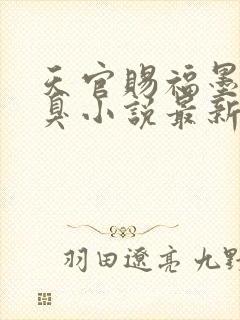 天官賜福墨
臭小說最新
羽田遼亮 九野